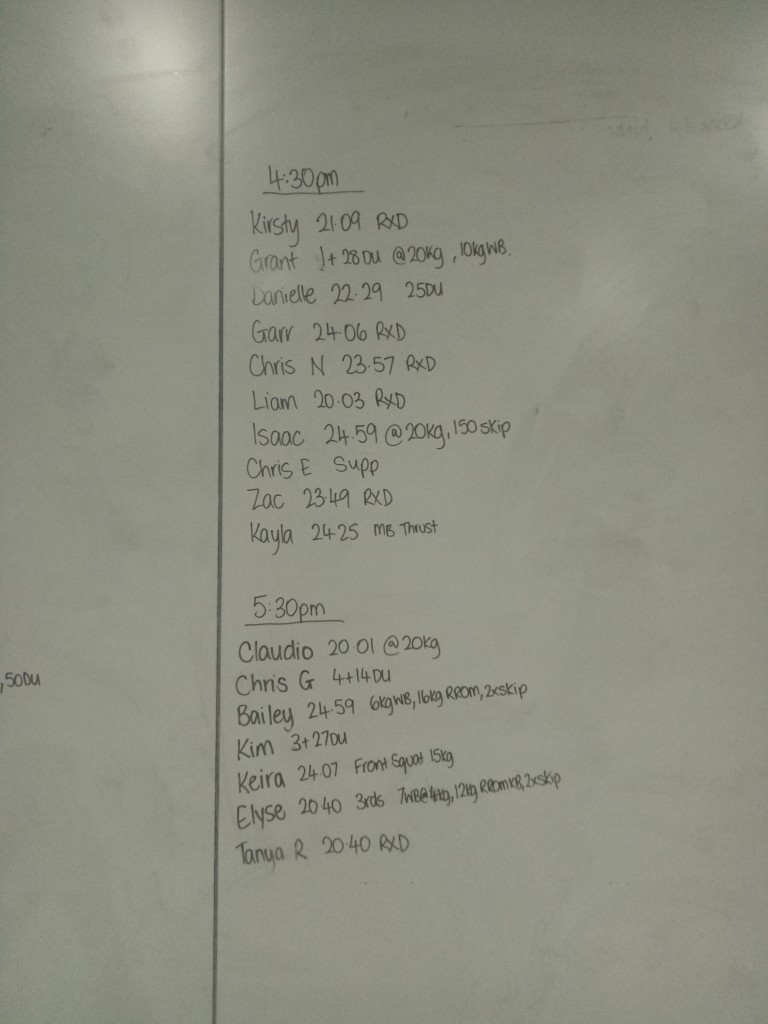 4:30pm
Kirsty 21.09 RXD
Grant 1+28DU @20kg, 10kgWB.
Danielle 22.29 25DU
Garr 24.06 RXD
Chris N 23.57 RXD
Liam 20.03 RXD
Isaac 24.59 @20kg, 150 skip
Chris E Supp
Zac 23.49 RXD
Kayla 24.25 MB Thrust
5:30pm
Claudio 20 01 @20kg
,50DU
Chris G 4+14DU
Bailey 24.59 6kgWB, 16kg RROM, 2xskip
Kim 3+27DU
Keira 24.07 Front Squat 15kg
Elyse 20.40 3rds 7WB@4kg, 12kg RROM KB, 2xskip
Tanya R 20.40 RXD